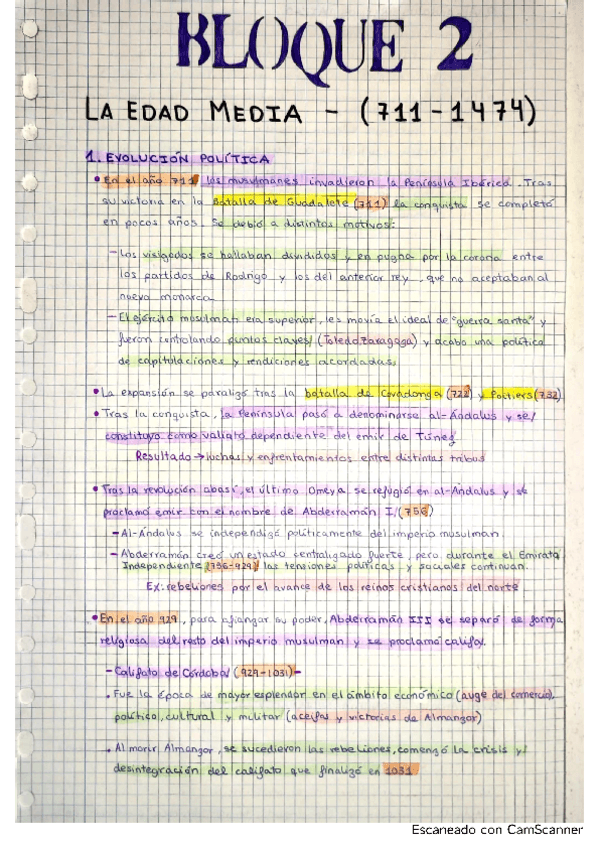 BLOQUE 2
LA EDAD MEDIA - (711-1474)
1. EVOLUCIÓN POLÍTICA
• En el año 711 los musulmanes invadieron la Península Ibérica. Tras
su victoria en la Batalla de Guadalete (711) la conquista se completó
en pocos años. Se debió a distintos motivos:
- Los visigodos se hallaban divididos y en pugna por la corona entre
los partidos de Rodrigo y los del anterior rey, que no aceptaban al
nuevo monarca
- El ejército musulmán era superior, les movía el ideal de "guerra santa" y
fueron controlando puntos claves (Toledo, Zaragoza) y acabo una política
de capitulaciones y rendiciones acordadas.
• La expansión se paralizó tras la batalla de Covadonga (722) y Poitiers (732)
• Tras la conquista, la Península pasó a denominarse al-Ándalus y se
constituyo como valiato dependiente del emir de Túnez
Resultado → luchas y enfrentamientos entre distintas tribus
• Tras la revolución abasí, el último Omeya se refugió en al-Ándalus y se
proclamó emir con el nombre de Abderramán I (756)
- Al-Ándalus se independizó políticamente del imperio musulman.
- Abderramán creó un estado centralizado fuerte, pero durante el Emirato
Independiente (756-929) las tensiones políticas y sociales continuan.
Ex: rebeliones por el avance de los reinos cristianos del norte
• En el año 929, para afianzar su poder, Abderramán III se separó de forma
religiosa del resto del imperio musulmán y se proclamó califa.
- Califato de Córdoba (929-1031) -
. Fue la época de mayor esplendor en el ámbito económico (auge del comercio),
político, cultural y militar (aceifas y victorias de Almanzor)
. Al morir Almanzor, se sucedieron las rebeliones, comenzó la crisis y
desintegración del califato que finalizó en 1031
Escaneado con CamScanner